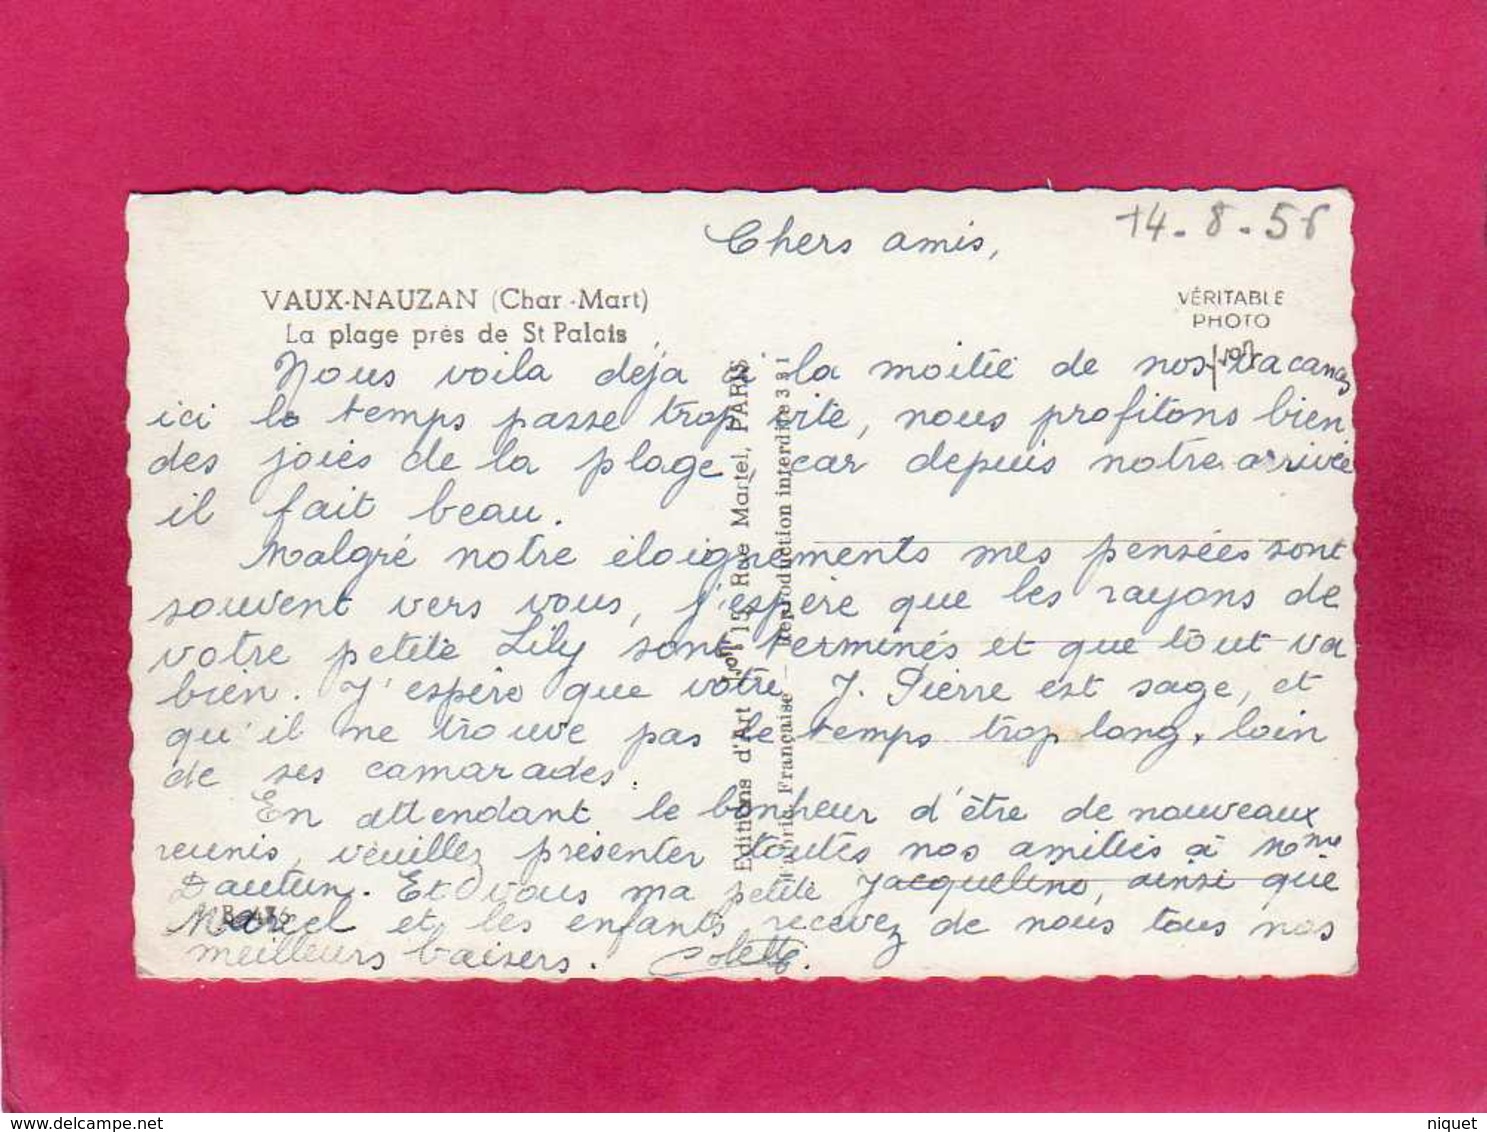 14-8-56
Chers amis,
VAUX-NAUZAN (Char.-Mart)
La plage près de St Palais
VÉRITABLE
PHOTO
Nous voila déja à la moitié de nos vacances
ici le temps passe trop vite, nous profitons bien
des joies de la plage, car depuis notre arrivée
il fait beau.
Malgré notre éloignements mes pensées sont
souvent vers vous, j'espère que les rayons de
votre petite Lily sont terminés et que tout va
bien. J'espère que votre J. Pierre est sage, et
qu'il ne trouve pas le temps trop long, loin
de ses camarades.
En attendant le bonheur d'être de nouveaux
reunis, veuillez présenter toutes nos amitiés à Mme
Dautun. Et vous ma petite Jacqueline, ainsi que
Marcel et les enfants recevez de nous tous nos
meilleurs baisers. Colette.
Editions d'Art 15, Rue Martel, PARIS
Fabric. Française - Reproduction interdite 391
niquet